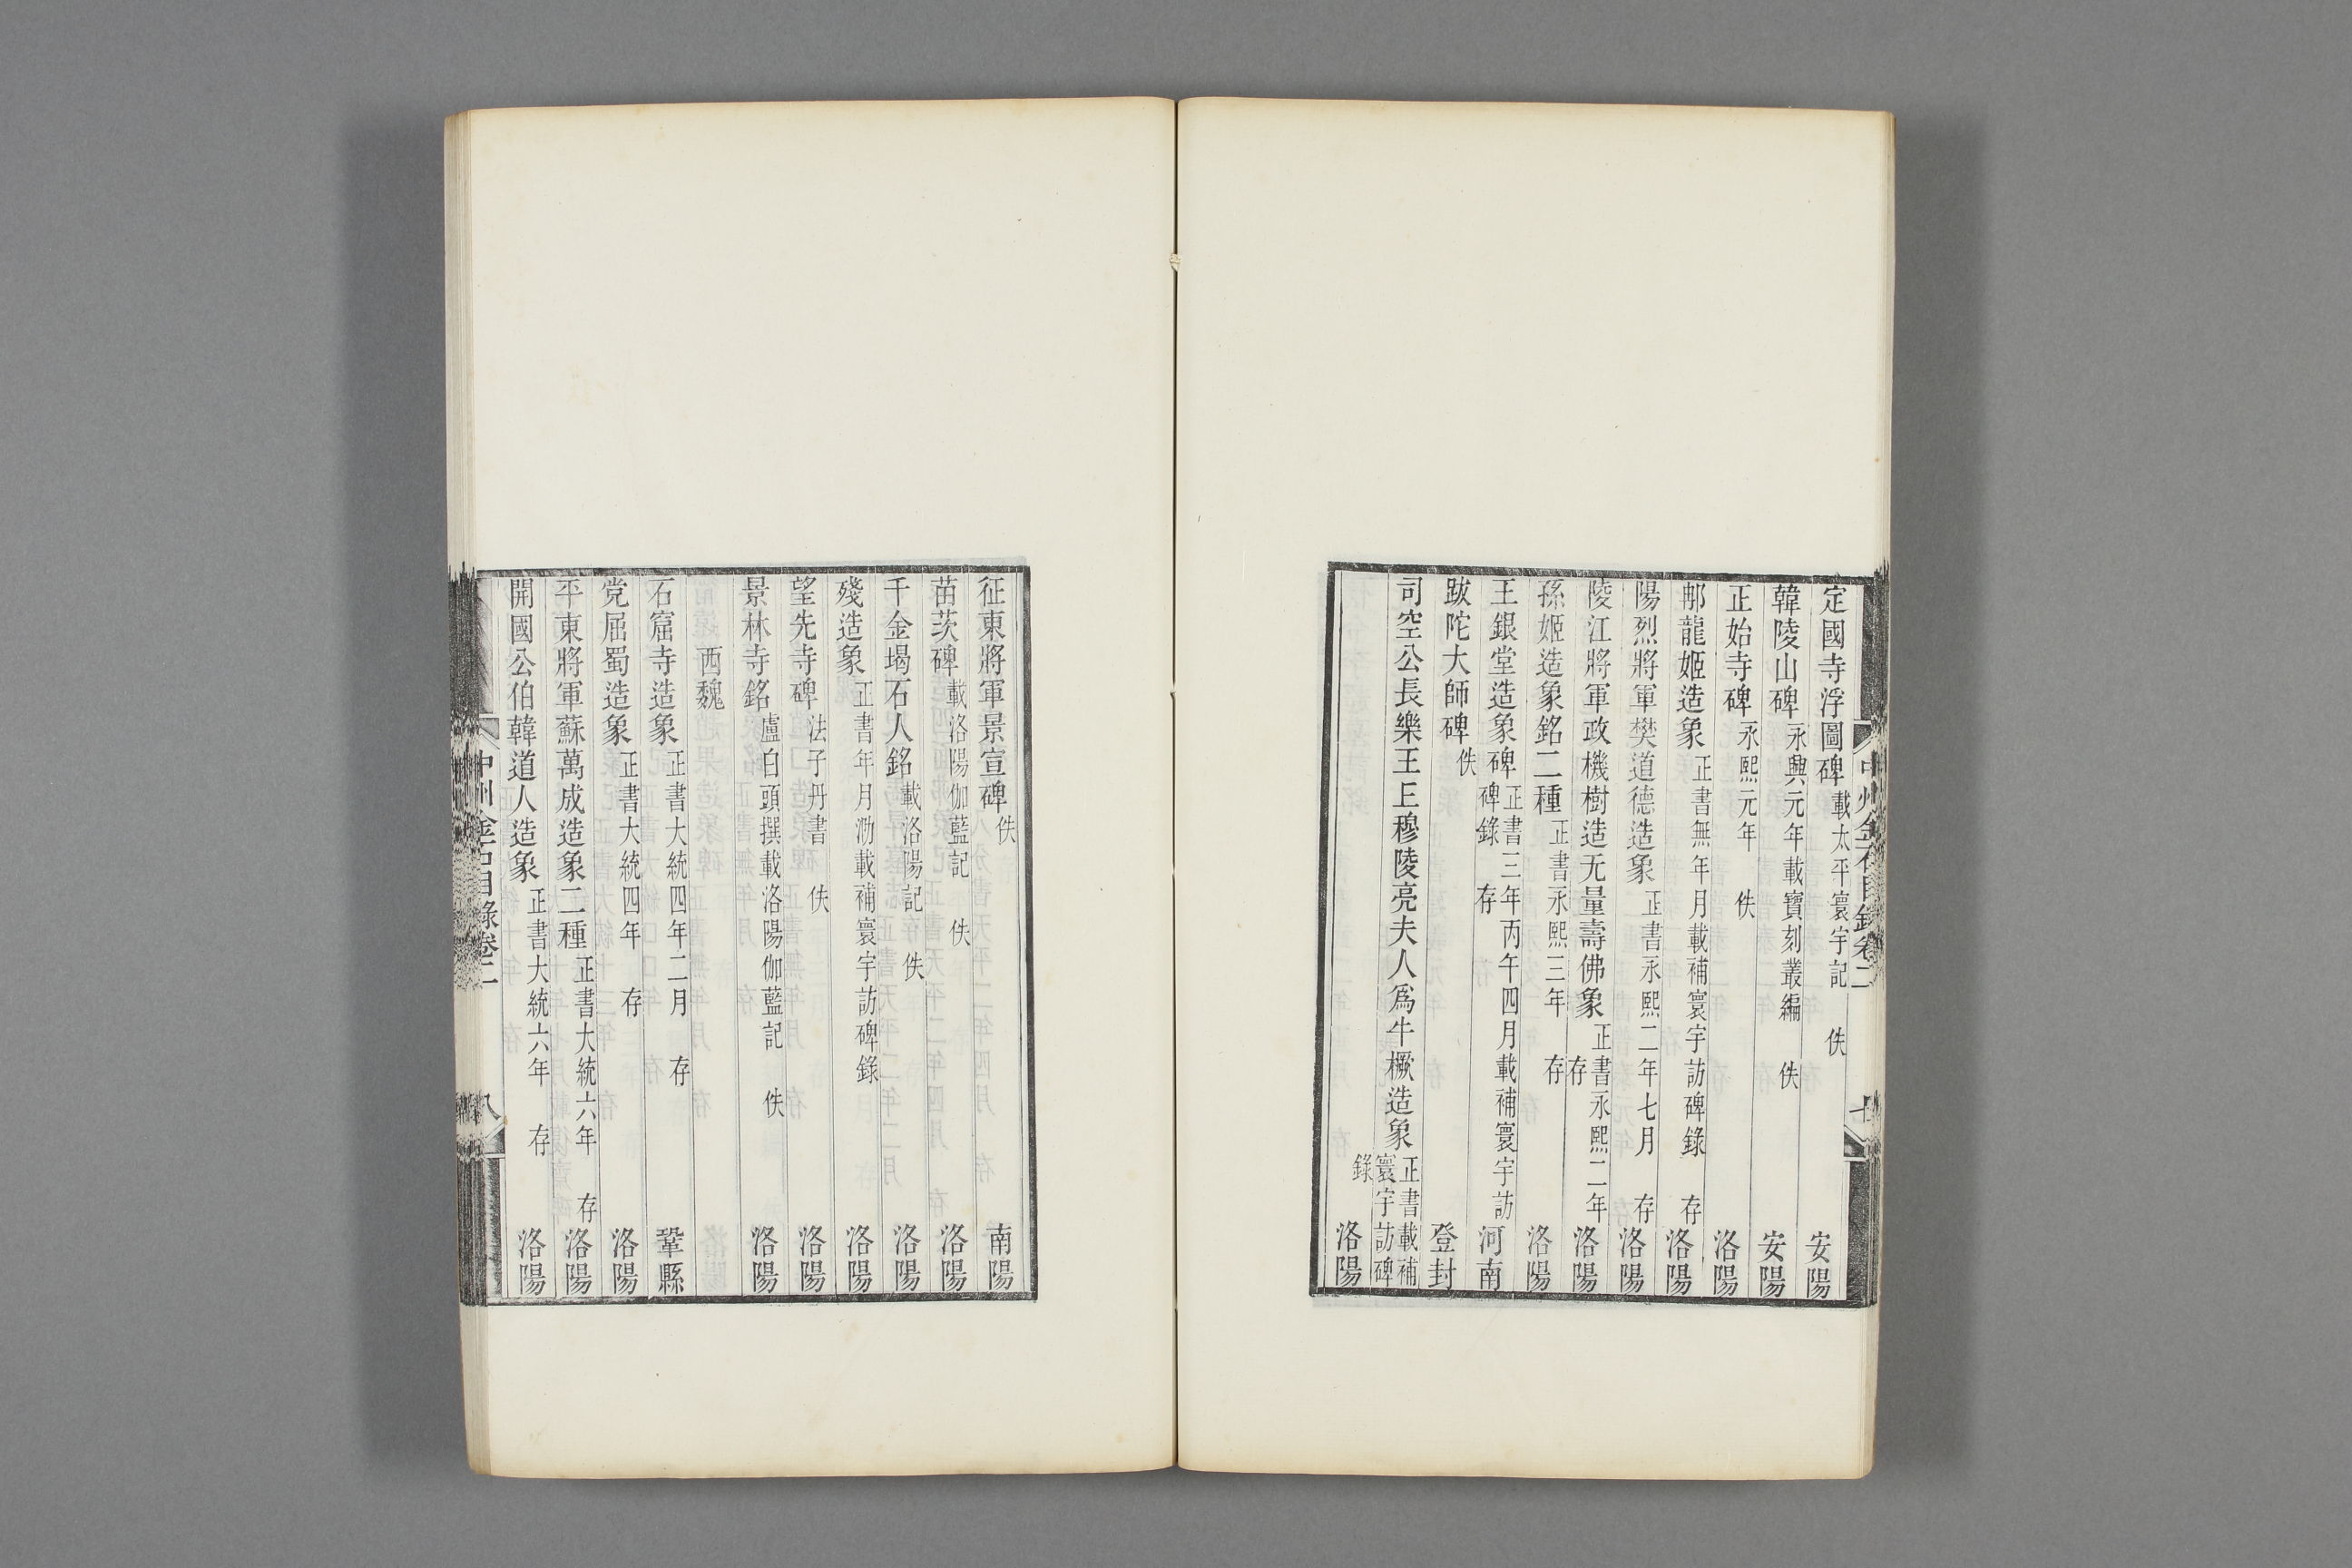 中州金石目錄卷二 七
定國寺浮圖碑 載太平寰宇記 佚 安陽
韓陵山碑 永興元年載寶刻叢編 佚 安陽
正始寺碑 永熙元年 佚 洛陽
郍龍姬造象 正書無年月載補寰宇訪碑錄 存 洛陽
陽烈將軍樊道德造象 正書永熙二年七月 存 洛陽
陵江將軍政機樹造无量壽佛象 正書永熙二年 存 洛陽
孫姬造象銘二種 正書永熙三年 存 洛陽
王銀堂造象碑 正書三年丙午四月載補寰宇訪碑錄 存 河南
跋陀大師碑 佚 登封
司空公長樂王丘穆陵亮夫人爲牛橛造象 正書載補寰宇訪碑錄 洛陽
征東將軍景宣碑 佚 南陽
苗茨碑 載洛陽伽藍記 佚 洛陽
千金堨石人銘 載洛陽記 佚 洛陽
殘造象 正書年月泐載補寰宇訪碑錄 洛陽
望先寺碑 法子丹書 佚 洛陽
景林寺銘 盧白頭撰載洛陽伽藍記 佚 洛陽
西魏
石窟寺造象 正書大統四年二月 存 鞏縣
党屈蜀造象 正書大統四年 存 洛陽
平東將軍蘇萬成造象二種 正書大統六年 存 洛陽
開國公伯韓道人造象 正書大統六年 存 洛陽
中州金石目錄卷二 八